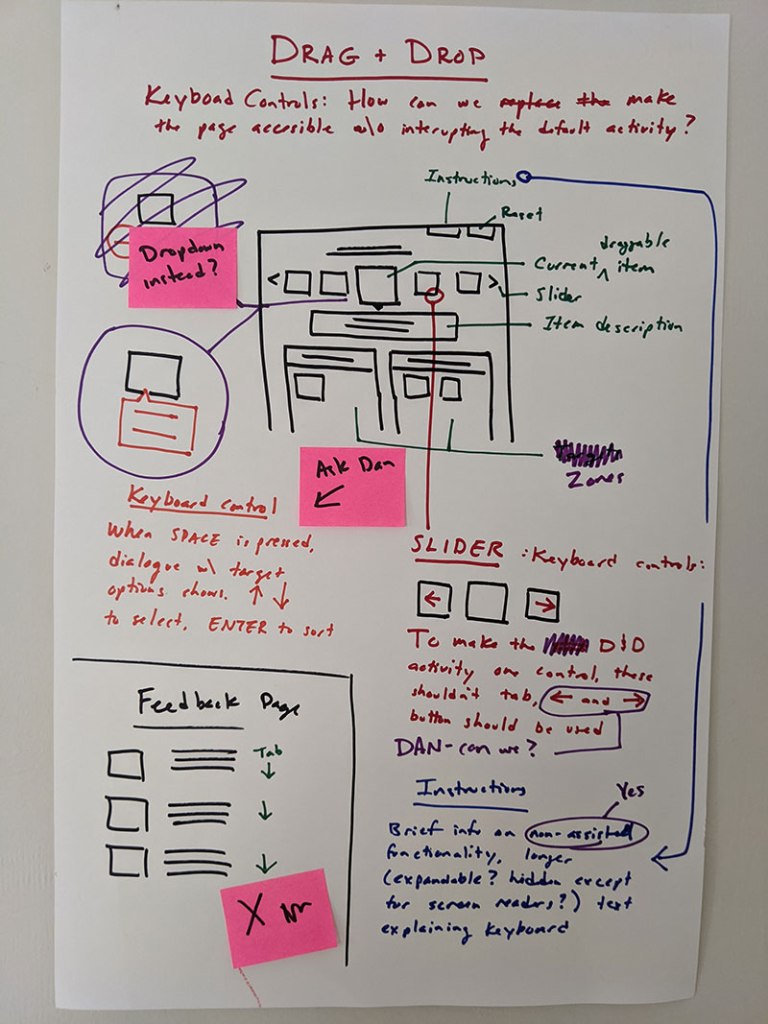 DRAG + DROP
Keyboad Controls: How can we replace the make
the page accesible w/o interupting the default activity?
Instructions
Reset
Dropdown
instead?
draggable
Current ^ item
Slider
Item description
Zones
Ask Dan
↙
Keyboard control
When SPACE is pressed,
dialogue w\ target
options shows. ↑ ↓
to select, ENTER to sort
SLIDER : Keyboard controls:
← →
To make the D&D
activity one control, these
shouldn't tab, ← and →
button should be used
DAN - can we?
Feedback Page
Tab
↓
↓
↓
X
Instructions
Yes
Brief info on non-assisted
functionality, longer
(expandable? hidden except
for screen readers?) text
explaining keyboard